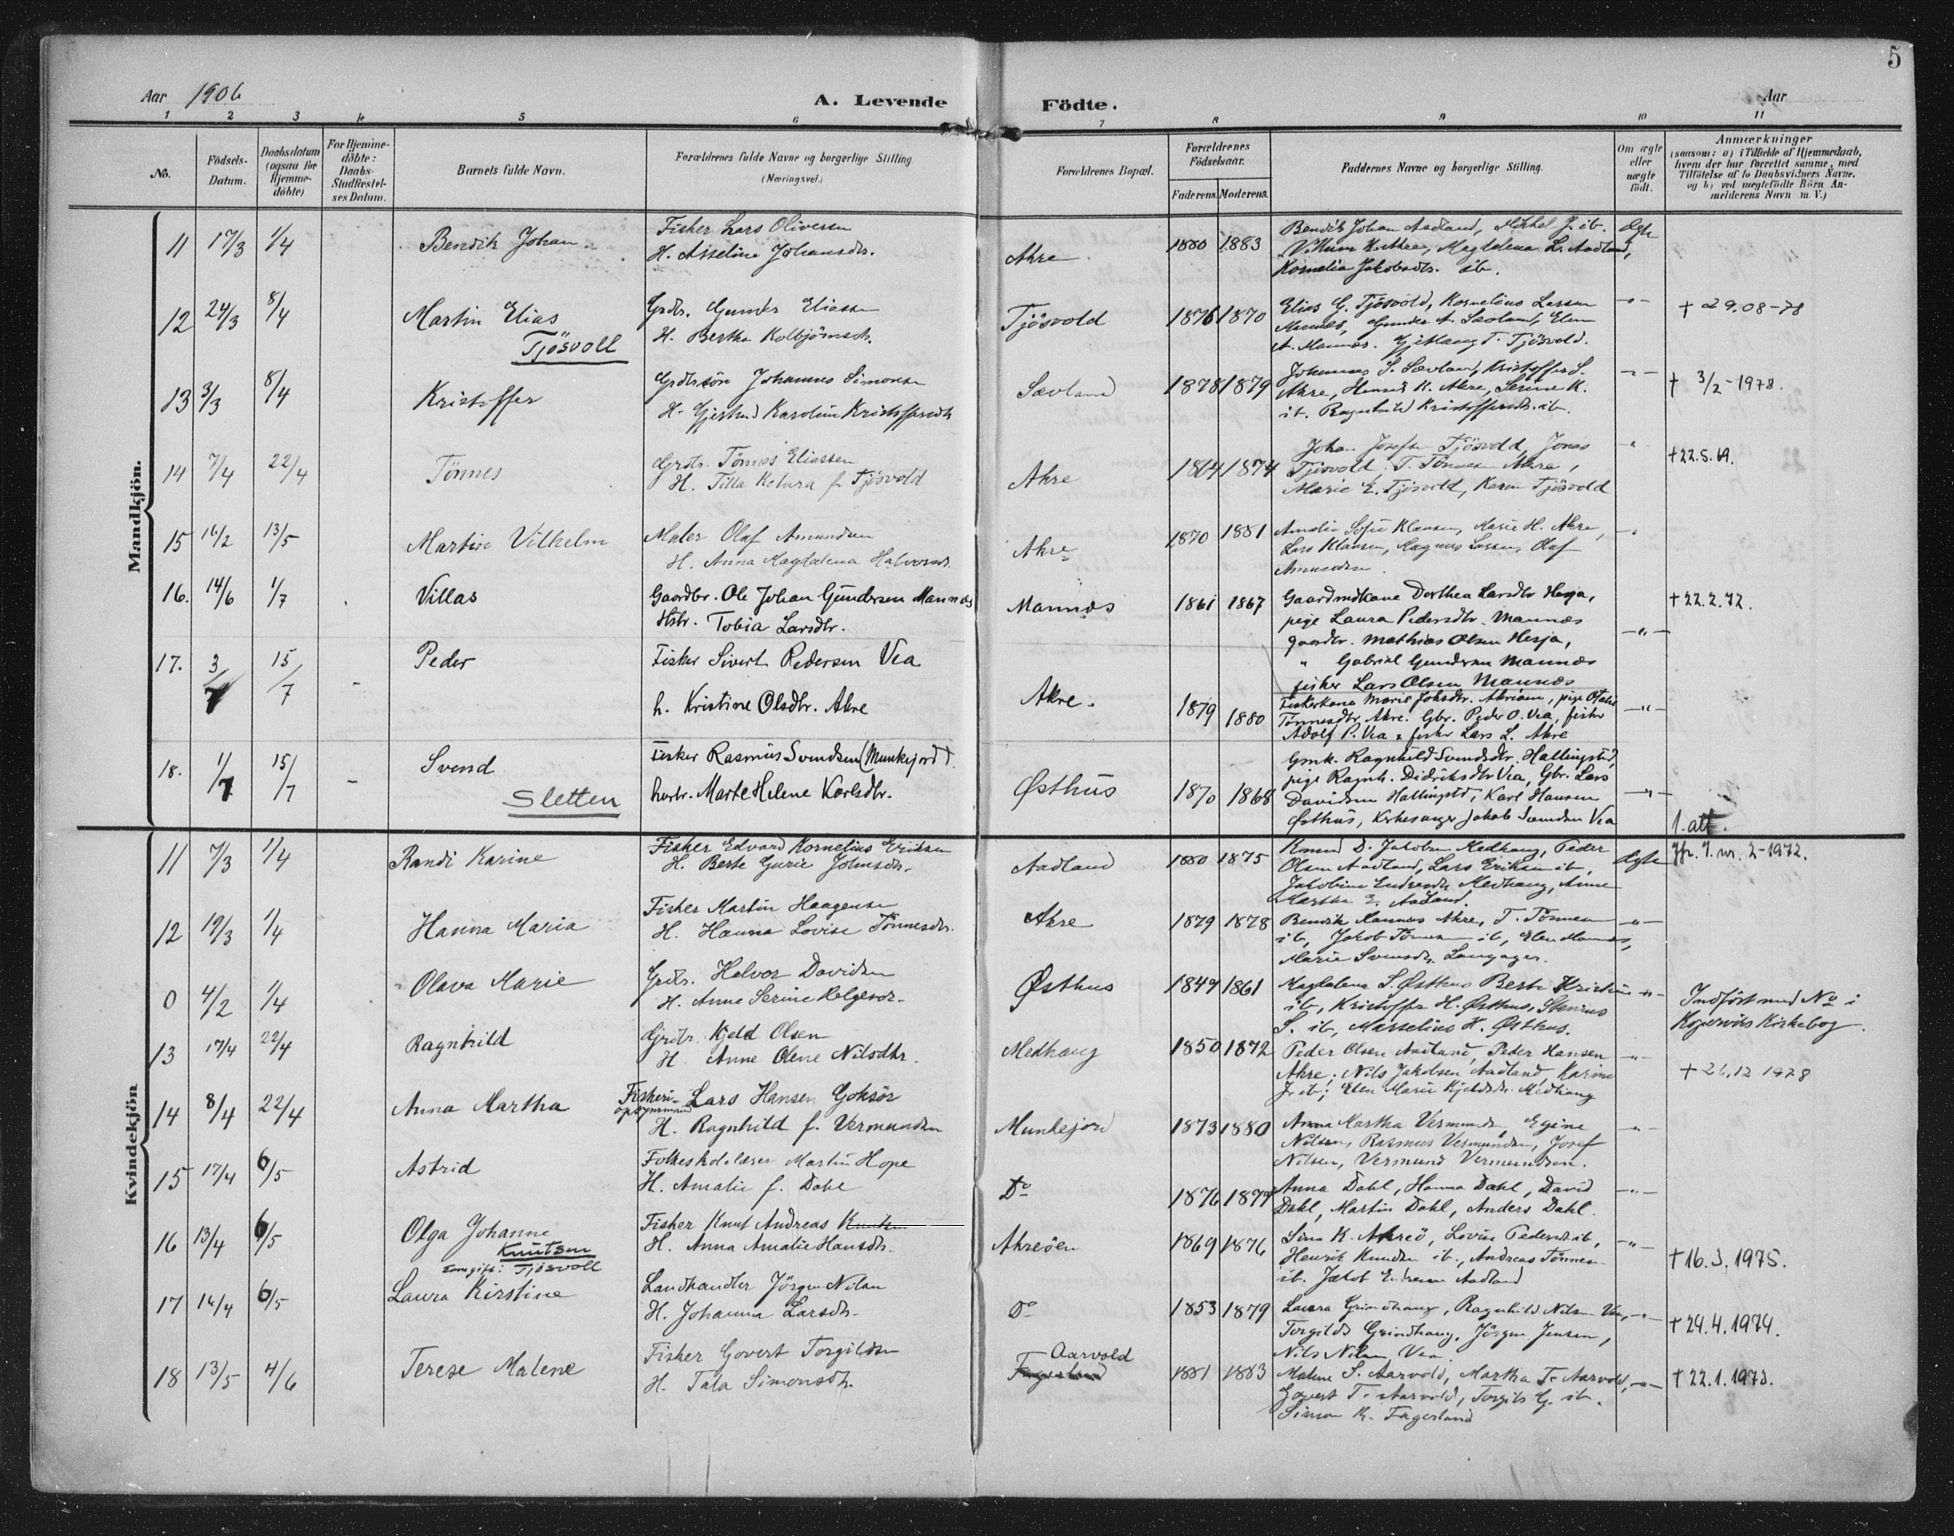 5
Aar 1906
A. Levende Födte.
Aar
1 2 3 4 5 6 7 8 9 10 11
No.
Födsels-
Datum.
Daabsdatum
(ogsaa for
Hjemme-
döbte)
For Hjemme-
döbte:
Daabs-
Stadfæstel-
ses Datum.
Barnets fulde Navn.
Forældrenes fulde Navne og borgerlige Stilling.
(Næringsvei.)
Forældrenes Bopæl.
Forældrenes
Födselsaar.
Faderens Moderens.
Faddernes Navne og borgerlige Stilling.
Om ægte
eller
uægte
födt.
Anmærkninger
(saasom: a) i Tilfælde af Hjemmedaab,
hvem der har forrettet samme, med
Tilföielse af to Daabsvidners Navne.
og b) ved uægtefödte Börn An-
melderens Navn m. V.)
Mandkjön.
11 17/3 1/4 Bendik Johan
Fisker Lars Oliversen
H. Asseline Johansdr.
Akre 1880 1883
Bendik Johan Aadland,
Magdalena L. Aadland,
Kornelia Jakobsdtr. ib.
Ægte
12 24/3 8/4 Martin Elias
Tjösvoll
Grdbr. Gunder Eliassen
H. Bertha Kolbjörnsdt.
Tjösvold 1876 1870
Elias G. Tjösvold, Kornelius Larsen
Mannes, Gunder A. Sævland, Elen
A. Mannes. T. Tjösvold.
-"-
+ 29.08-78
13 3/3 8/4 Kristoffer
Johannes Simonsen
H. Gjertrud Karoline Kristoffersdt.
Sævland 1878 1879
Johannes S. Sævland, Kristoffer S.
Akre, K. Akre, Serine K.
ib. Ragnhild Kristoffersdr. ib.
-"-
+ 3/2-1978.
14 7/4 22/4 Tönnes
Grdbr. Tönnes Eliassen
H. Tilla Ketura f. Tjösvold
Akre 1864 1874
Johan Tjösvold, Jonas
Tjösvold. T. Tönnesen Akre,
Marie E. Tjösvold, Tjösvold
"
+22.5.69.
15 16/2 13/5 Martin Vilhelm
Maler Olaf Amundsen
H. Anna Magdalena Halvorsdt.
Akre 1870 1881
Amalie Sofie Klausen, Marie H. Akre,
Lars Klausen, Magnus Larsen, Olaf
Amundsen.
-"-
16. 14/6 1/7 Villas
Gaardbr. Ole Johan Gundersen Mannæs
Hstr. Tobia Larsdtr.
Mannæs 1861 1867
Gaardmdkone Dorthea Larsdtr Hesja,
pige Laura Pedersdtr. Mannæs
gaardbr. Mathias Olsen Hesja,
" Gabriel Gundersen Mannæs
fisker Lars Olsen Mannæs
-"-
+22.2.72.
17. 3/7 15/7 - Peder
Fisker Sivert Pedersen Vea
h. Kristine Olsdtr. Akre
Akre. 1879 1880
Fiskerkone Marie Akre, pige Otalie
Tönnesdtr. Akre. Gbr. Peder O. Vea, fisker
Adolf P. Vea & fisker Lars L. Akre
-"-
18. 1/7 15/7 - Svend
Sletten
Fisker Rasmus Svendsen (Munkejord)
hustr. Marte Helene Karlsdtr.
Østhus 1870 1868
Gmk. Ragnhild Svendsdtr. Hallingstad,
pige Ragnh. Didriksdtr Vea, Gbr. Lars
Davidsen Hallingstd, Karl Hansen
Østhus, Kirkesanger Jakob Svendsen Vea
-"-
1. att.
Kvindekjön
11 7/3 1/4 Randi Karine
Fisker Edvard Kornelius Eriksen
H. Berte Gurie
Aadland 1880 1875
Knud D. Jakobsen Medhaug, Peder
Olsen Aadland, Lars Eriksen ib,
Jakobine Endresdt. Medhaug, Anne
Martha E. Aadland.
Ægte
Jfr. J. nr. 2-1972.
12 19/3 1/4 Hanna Maria
Fisker Martin Haagensen
H. Hanna Lovise Tönnesdr.
Akre 1879 1878
Bendik Mannes Akre, T. Tönnesen
ib, Jakob Tönnesen ib, Elen Hannes,
Marie Svensdt. Langager.
-"-
0 4/2 1/4 Olava Marie
Grdbr. Halvor Davidsen
H. Anne Serine Helgesdr.
Østhus 1849 1861
Magdalena S. Østhus Berte Kristine
ib, Kristoffer H. Østhus,
S. ib, Marselius H. Østhus.
-"-
Indfört med No i
Kopervik Kirkebog.
13 17/4 22/4 Ragnhild
Grdbr. Kjeld Olsen
H. Anne Olene Nilsdtr.
Medhaug 1850 1872
Peder Olsen Aadland, Peder Hansen
Akre, Nils Jakobsen Aadland Karine
J. ib, Elen Marie Kjeldsdt. Medhaug
-"-
+ 26.12 1978
14 8/4 22/4 Anna Martha
Fiskeri-
opsynsmand Lars Hansen Goksör
H. Ragnhild f. Vermundsen
Munkejord 1873 1880
Anna Martha Vermunds, Egine
Nilsen, Rasmus Vermundsen, Josef
Nilsen, Vermund Vermundsen.
"
15 17/4 6/5 Astrid
Folkeskolelærer Martin Hope
H. Amalie f. Dahl
Do 1876 1877
Anna Dahl, Hanna Dahl, David
Dahl, Martin Dahl, Anders Dahl.
-"-
16 13/4 6/5 Olga Johanne
Knutsen
Tjösvoll
Fisker Knut Andreas Knutsen
H. Anna Amalie Hansdtr.
Akreöen 1869 1876
Sina K. Akreö, Lovise Pedersdt. ib,
Henrik Knudsen ib, Andreas Tönnesen
ib. Jakob Endresen Aadland
-"-
+16.3.1975.
17 16/4 6/5 Laura Kirstine
Landhandler Jörgen Nilsen
H. Johanna Larsdt.
Do 1853 1879
Laura Grindhaug, Ragnhild Nilsen Vea,
Torgilds Grindhaug, Jörgen Jensen,
Nils Nilsen Vea
-"-
+24.4.1974.
18 13/5 4/6 Terese Malene
Fisker Govert Torgildsen
H. Tala Simonsdt.
Aarvold
Fagerland 1881 1883
Malene S. Aarvold, Martha T. Aarvold,
Govert T. Aarvold, Torgils G. ib.
Simon K. Fagerland
-"-
+22.1.1973.